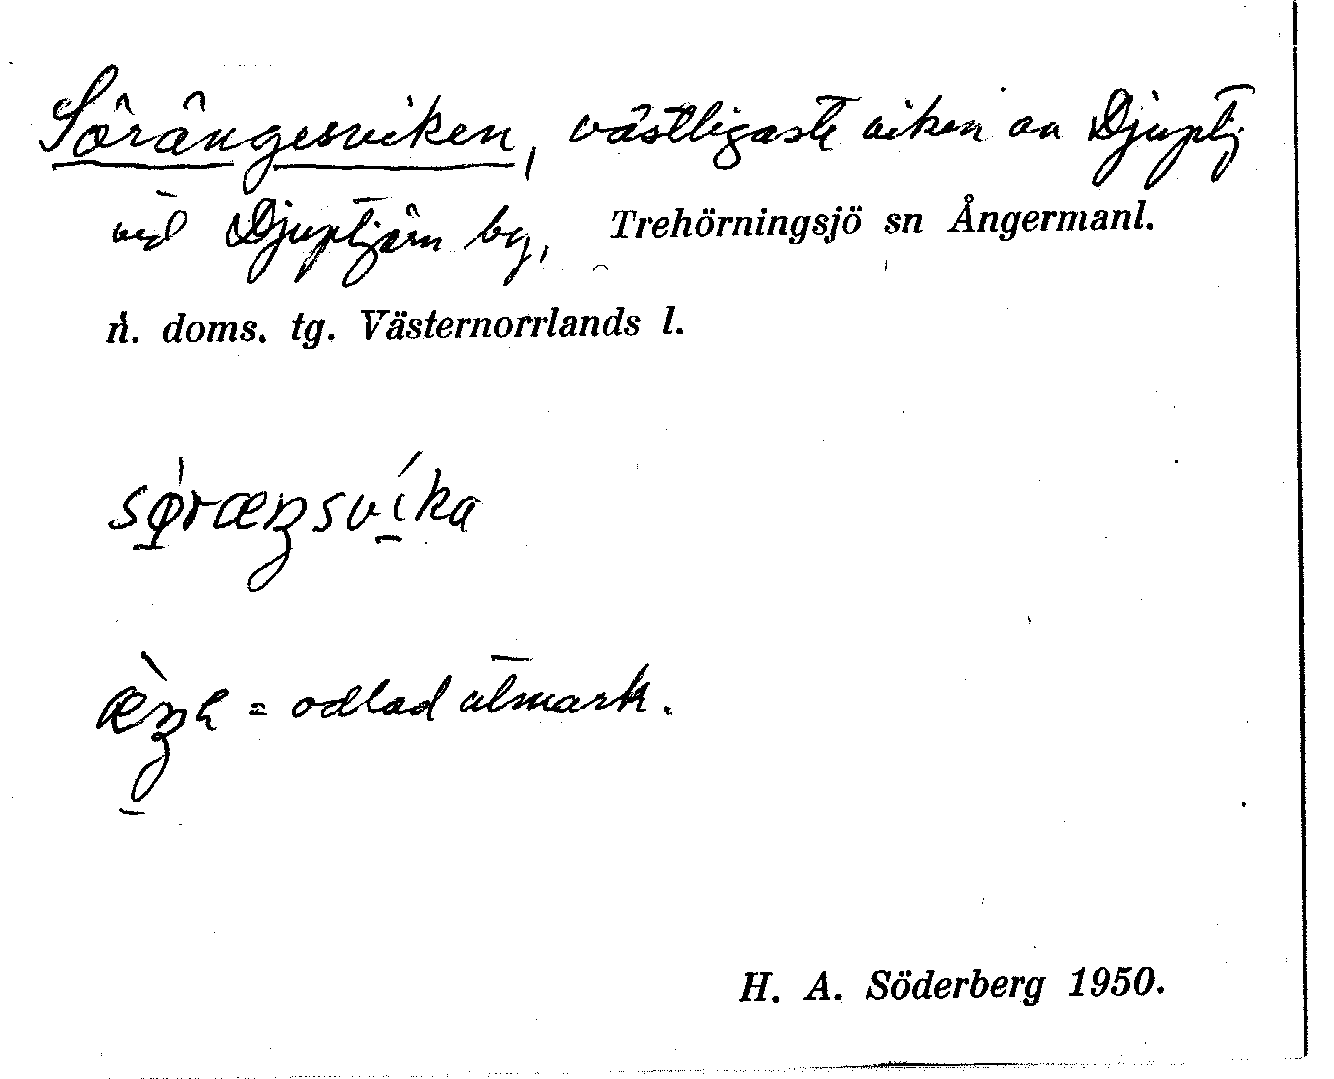 Sörängesviken, västligaste viken av Djuptj
vid Djuptjärn by, Trehörningsjö sn Ångermanl.
n. doms. tg. Västernorrlands l.
sø̱ræŋsvíka
æ̀ŋe = odlad utmark.
H. A. Söderberg 1950.